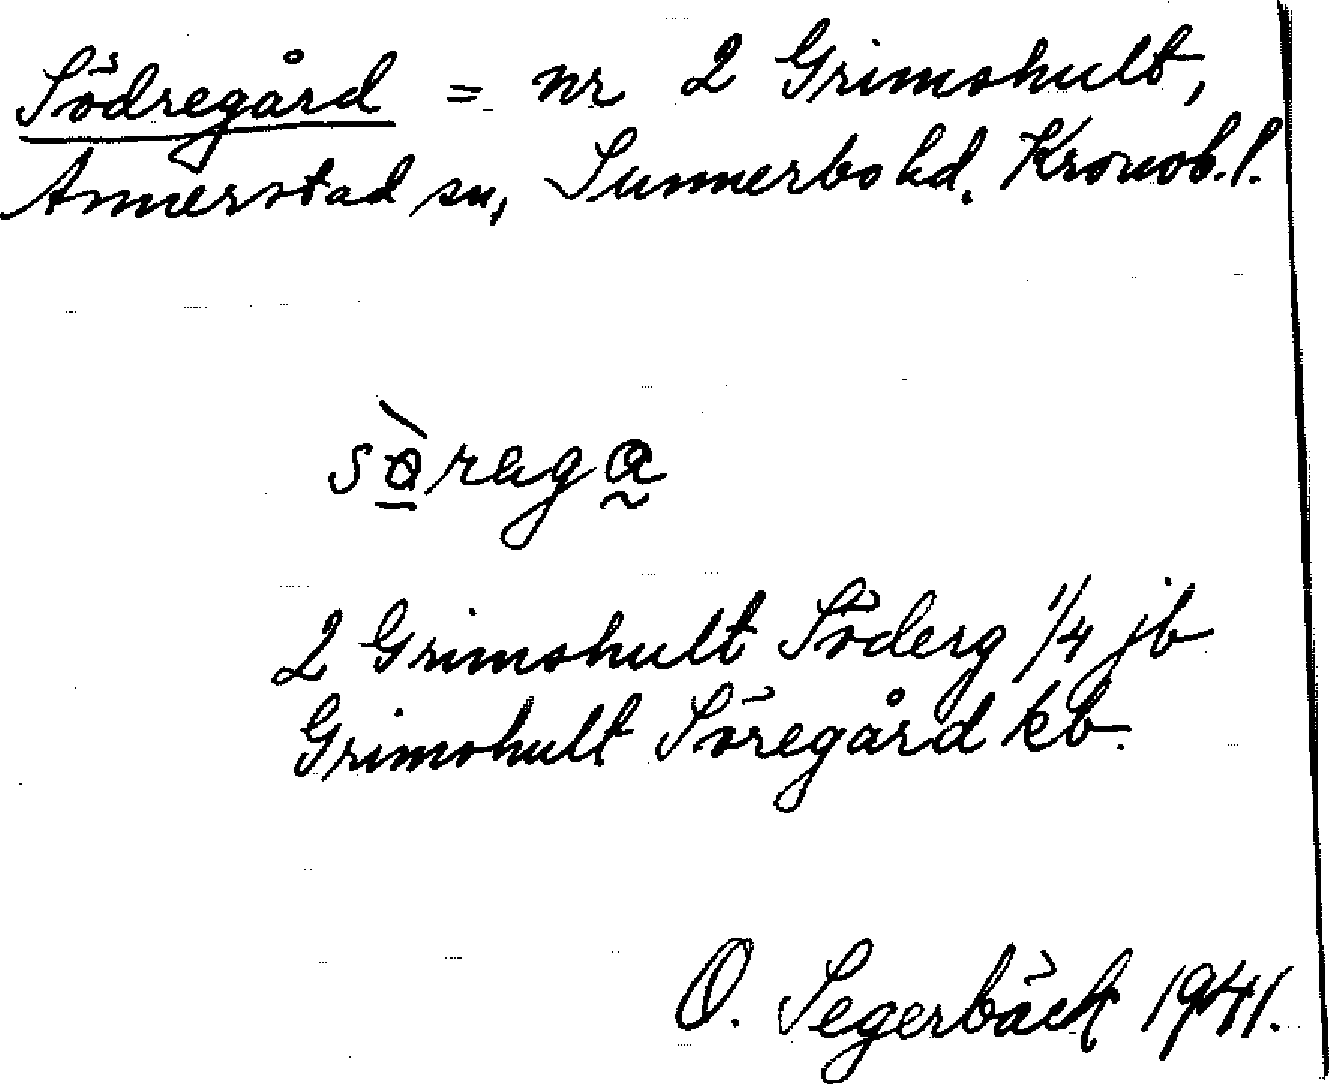 Södregård = nr 2 Grimshult,
Annerstad sn, Sunnerbo hd. Kronob. l.
sö̀raga
2 Grimshult Söderg 1/4 jb
Grimshult Söregård kb.
O. Segerbäck 1941.